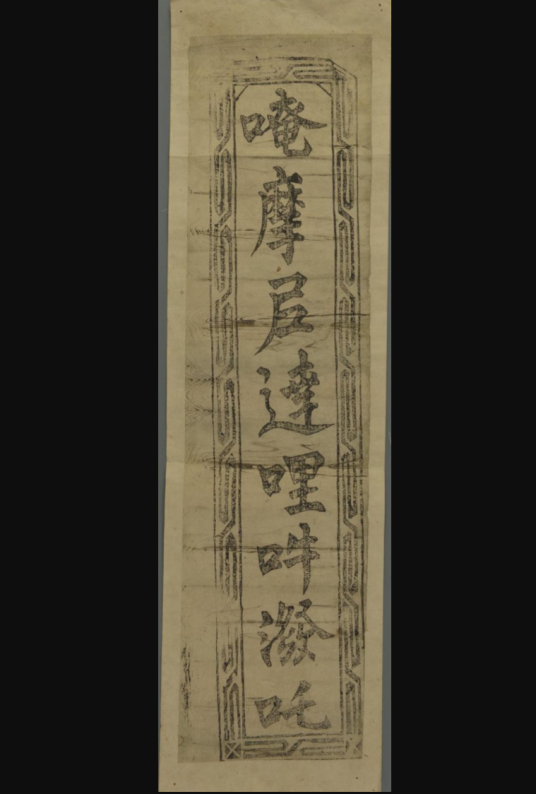 唵摩尼達哩吽潑吒